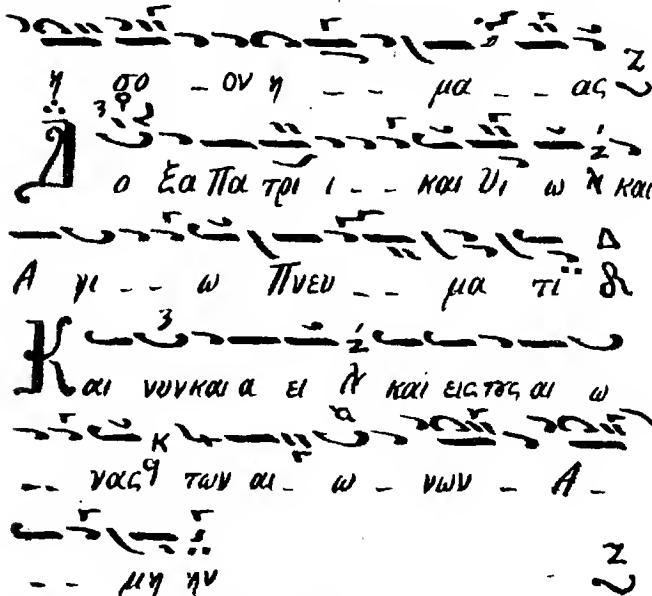 η σο - ον η - - - μα - - ας Ζ
Δ ο ξα Πα τρι ι - - και Υι ω και
Α γι - - ω Πνευ - - μα τι Δ
Και νυν και α ει και εις τȣς αι ω
- - νας των αι - ω - νων - Α -
- - μη ην Ζ